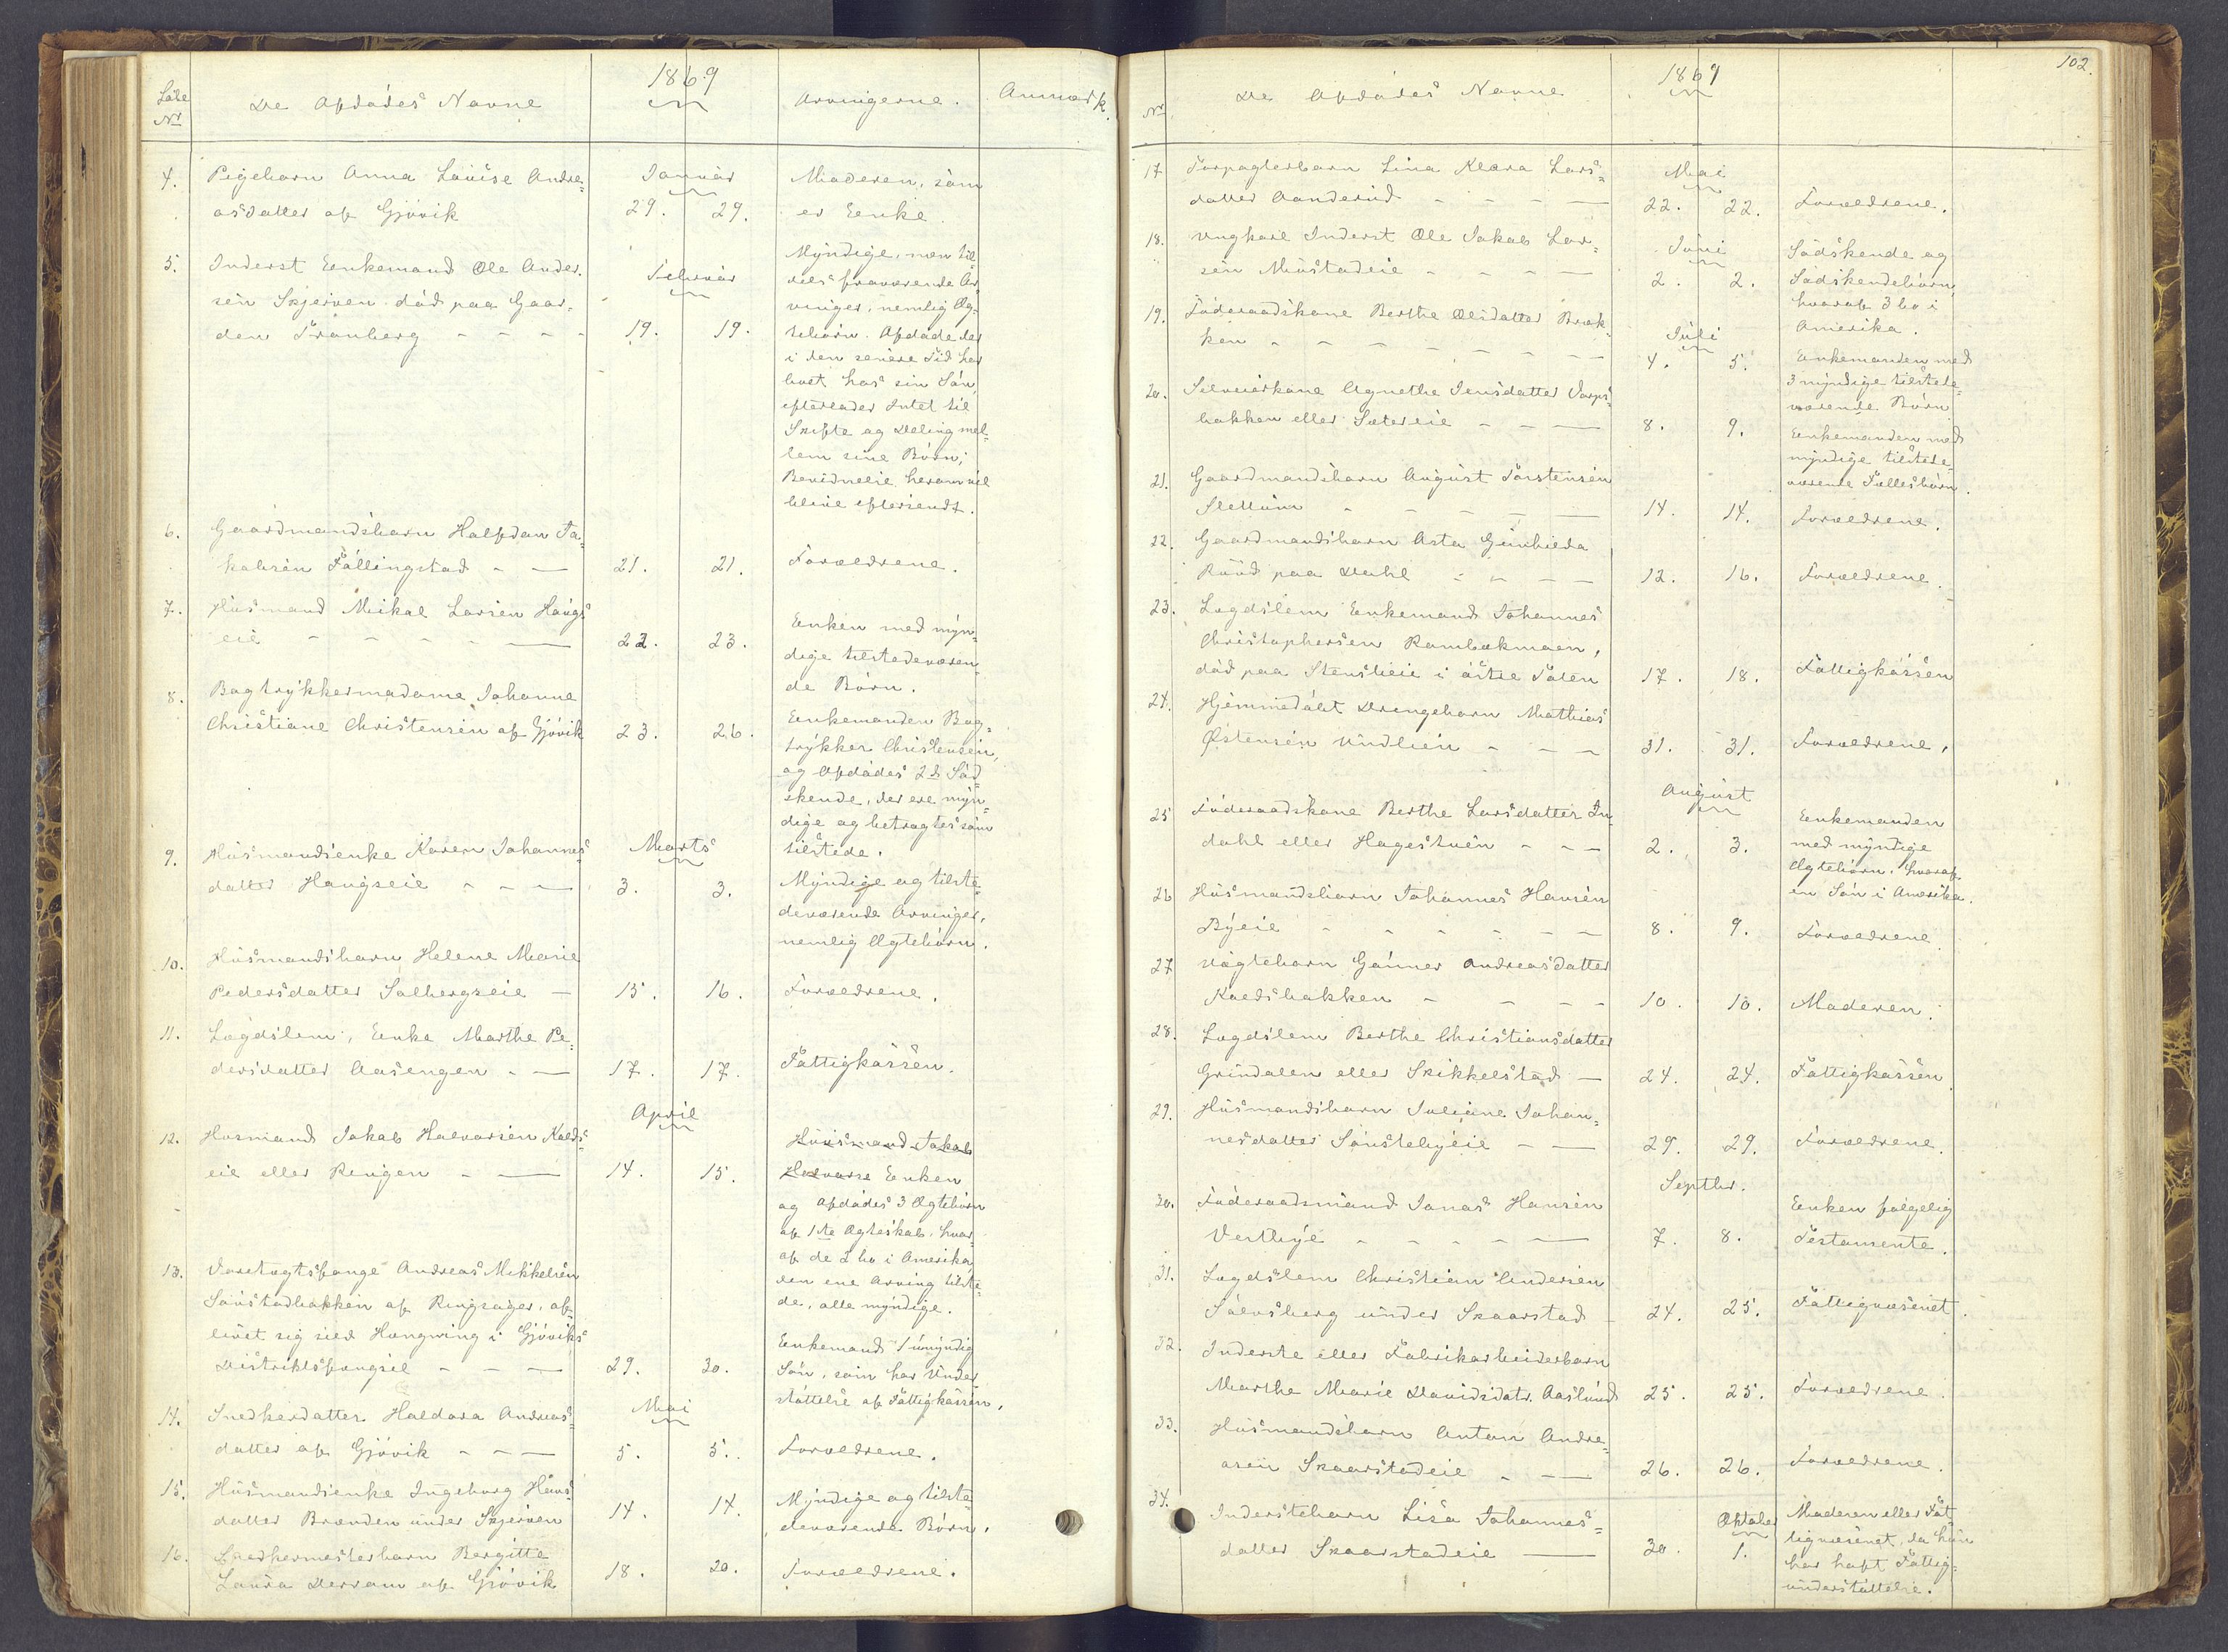 Løbe
No
De Afdødes Navne
1869
Arvingerne.
Anmærk.
4. Pigebarn Anna Lovise Andre=
asdatter af Gjøvik
Januar
29. 29.
Moderen, som
er Enke.
5. Inderst Eenkemand Ole Ander=
sen Skjerven død paa Gaar=
den Tranberg
Februar
19. 19.
Myndige, men til=
dels fraværende Ar=
vinger, nemlig Æg=
tebørn. Afdøde der
i den senere Tid har
boet hos sin Søn,
efterlader Intet til
Skifte og Deling mel=
lem sine Børn;
Bevidnelse herom vil
blive eftersendt.
6. Gaardmandsbarn Halfdan Ja=
kobsen Fallingstad
21. 21.
Forældrene.
7. Husmand Mikal Larsen Haugs
eie
22. 23.
Enken med myn=
dige tilstedeværen=
de Børn.
8. Bogtrykkermadame Johanne
Christiane Christensen af Gjøvik
23. 26.
Eenkemanden Bog=
trykker Christensen,
og Afdødes 2de Sød=
skende, der ere myn=
dige og betragtes som
tilstede.
9. Husmandsenke Karen Johannes
datter Haugseie
Marts
3. 3.
Myndige og tilste=
deværende Arvinger,
nemlig Ægtebørn.
10. Husmandsbarn Helene Marie
Pedersdatter Solbergseie
15. 16.
Forældrene.
11. Lægdslem, Enke Marthe Pe=
dersdatter Aasengen
17. 17.
Fattigkassen.
12. Husmand Jakob Halvorsen Kolds
eie eller Ringen
April
14. 15.
Husmand Jakob
Halvorse Enken
og Afdødes 3 Ægtebørn
af 1ste Ægteskab, hvor=
af de 2 bo i Amerika,
den ene Arving tilste=
de, alle myndige.
13. Varetægtsfange Andreas Mikkelsen
af Ringsager, af=
livet sig ved Hængning i Gjøviks
Distriktsfængsel
29. 30.
Enkemand 1 umyndig
Søn, som har Under=
støttelse af Fattigkassen.
14. Snedkerdatter Haldora Andreas=
datter af Gjøvik
Mai
5. 5.
Forældrene.
15. Husmandsenke Ingeborg Hans
datter Brænden under Skjerven
14. 14.
Myndige og tilste=
deværende Børn.
16. Snedkermesterbarn Bergitte
Laura af Gjøvik
18. 20.
Forældrene.
102.
No
De Afdødes Navne
1869
17 Forpagterbarn Lina Klara Lars=
datter Aanderud
Mai
22. 22.
Forældrene.
18. Ungkarl Inderst Ole Jakob Lar=
sen Mustadeie
Juni
2. 2.
Sødskende og
Sødskendebørn,
hvoraf 3 bo i
Amerika.
19. Føderaadskone Berthe Olesdatter Bræk=
ken
Juli
4. 5.
Eenkemanden med
3 myndige tilstede=
værende Børn.
20. Selveierkone Agnethe Jensdatter
bakken eller Sætereie
8. 9.
Eenkemanden med
myndige tilstede=
værende Fællesbørn.
21. Gaardmandsbarn August Torstensen
Slettum
14. 14.
Forældrene.
22. Gaardmandsbarn Asta Gunhilda
Ruud paa Dahl
12. 16.
Forældrene.
23. Lægdslem Eenkemand Johannes
Christophersen
død paa i østre Toten
17. 18.
Fattigkassen
24. Hjemmedøbt Drengebarn Mathias
Østensen Undlien
31. 31.
Forældrene.
25 Føderaadskone Berthe Larsdatter In
dahl eller Hagestuen
August
2. 3.
Eenkemanden
med myndige
Ægtebørn, hvoraf
en Søn i Amerika.
26 Husmandsbarn Johannes Hansen
Byeie
8. 9.
Forældrene.
27 Uægtebarn Andreasdatter
Koldsbakken
10. 10.
Moderen.
28. Lægdslem Berthe Christiansdatter
Grindalen eller Skikkelstad
24. 24.
Fattigkassen.
29. Husmandsbarn Juliane Johan=
nesdatter Sønstebyeie
29. 29.
Forældrene.
30. Føderaadsmand Jonas Hansen
Vestbye
Septbr.
7. 8.
Enken følgelig
Testamente.
31. Lægdslem Christian Andersen
Sølvsberg under Skaarstad
24. 25.
Fattigvæsenet.
32. Inderste eller Fabrikarbeiderbarn
Marthe Marie Davidsdatr. Aaslund
25. 25.
Forældrene.
33. Husmandsbarn Anton Andre=
asen Skaarstadeie
26. 26.
Forældrene.
34. Inderstebarn Lisa Johannes=
datter Skaarstadeie
Oktober
30. 1.
Moderen eller Fat=
tigvæsenet, da hun
har haft Fattig=
understøttelse.